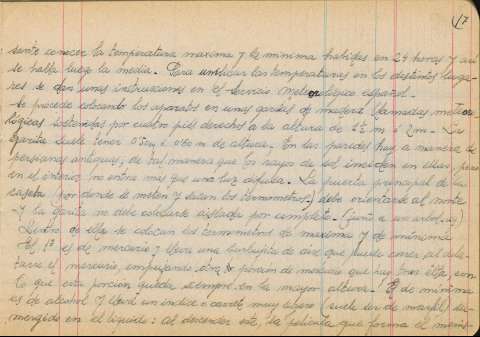 17
sante conocer la temperatura maxima y la minima habidas en 24 horas y así
se halla luego la media. - Para unificar las temperaturas en los distintos luga-
res se dan unas instrucciones en el Servicio Meteorológico español.
Se procede colocando los aparatos en unas garitas de madera llamadas meteoro-
lógicas sostenidas por cuatro pies derechos a la altura de m ó 2m. - La
garita suele tener de altura. - En las paredes hay a manera de
persianas antiguas, de tal manera que los rayos de sol inciden en ellas pero
en el interior no entra mas que una luz difusa. - La puerta principal de la
caseta (por donde se meten y sacan los termometros) debe orientarse al norte
Y la garita no debe colocarse aislada por completo. (junto a un arbol)
Dentro de ella se colocan los termometros de maxima y de minima
El 1º es de mercurio y lleva una burbujita de aire que puede correr al dila-
tarse el mercurio, empujando otra porcion de mercurio que hay tras ella, con
lo que esta porción queda siempre en la mayor altura. - El de minima
es de alcohol y lleva un indice ó muy ligero (suele ser de marfil) su-
mergido en el líquido: al descender este, la pelicula que forma el menis-